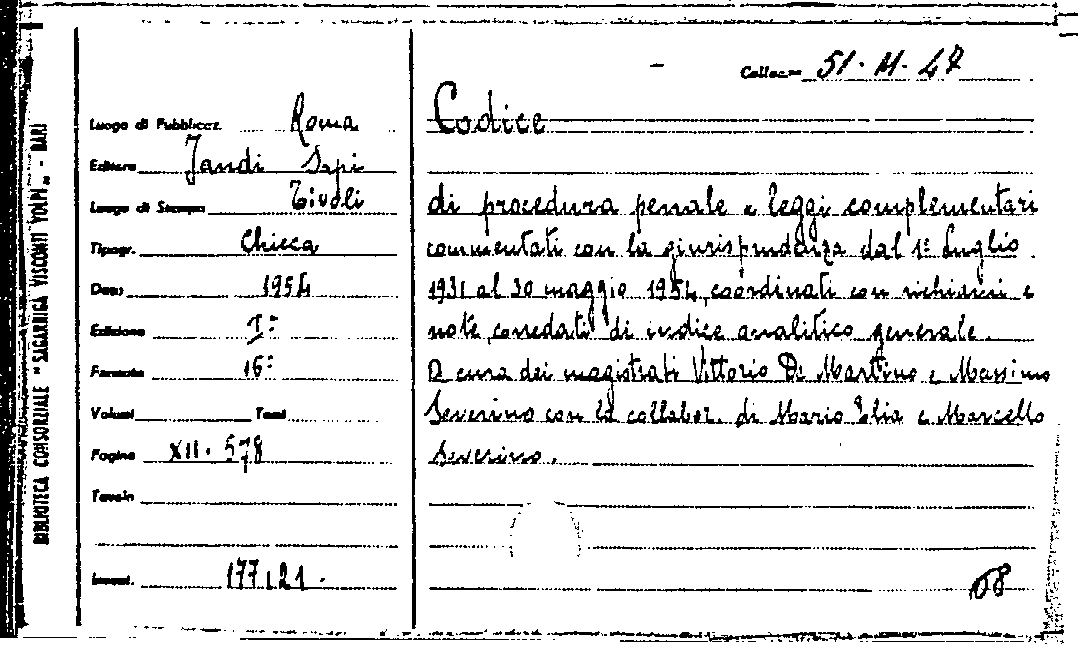 BIBLIOTECA CONSORZIALE "SAGARRIGA VISCONTI VOLPI" - BARI
Colloc.ne 51. M. 47
Luogo di Pubblicaz. Roma
Editore Jandi Sapi
Luogo di Stampa Tivoli
Tipogr. Chicca
Data 1954
Edizione Iª
Formato 16°
Volumi Tomi
Pagine XII. 578
Tavole
Invent. 177121.
Codice
di procedura penale e leggi complementari
commentati con la giurisprudenza dal 1º Luglio
1931 al 30 maggio 1954, coordinati con richiami e
note, corredati di indice analitico generale.
A cura dei magistrati Vittorio De Martino e Massimo
Severino con la collabor. di Mario Elia e Marcello
Severino.